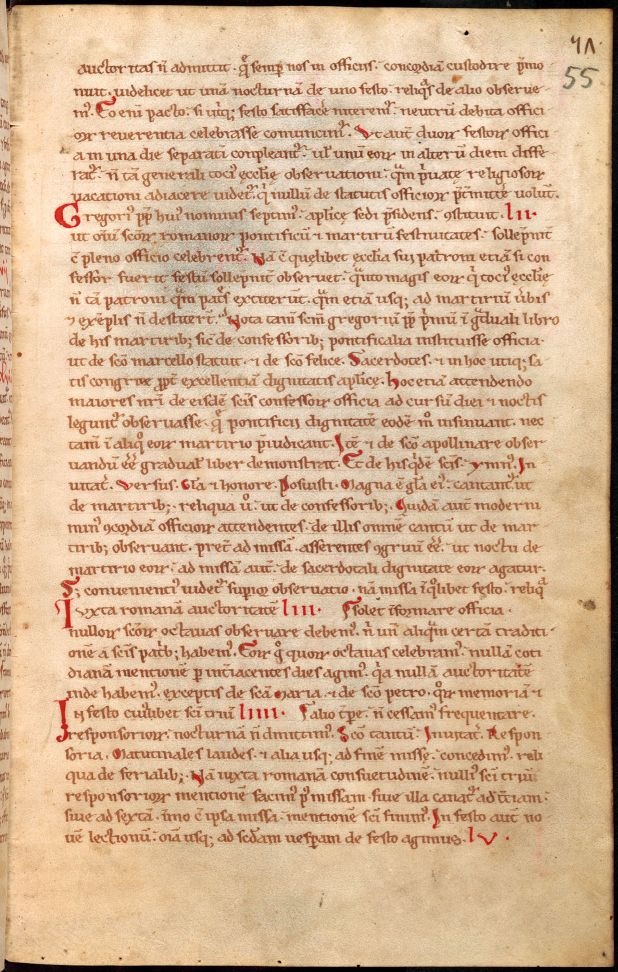 55
auctoritas n̄ admittit · q̄ semp̄ nos in officiis · concordiā custodire p̄mo
nuit · videlicet ut unā nocturnā de uno festo · reliq̄s de alio observe
m᷒ · eni pacto · si utq̨ festo satisfacē · neutrū debita offici
oꝝ reverentia celebrasse · Ut aut̄ duoꝝ festoꝝ offici
a in una die separatī conpleant᷒ · ul̄ unū eoꝝ in alterū diem diffe
rat᷒ · n̄ tā generali toci᷒ ecclīę observationi · quā p̄vate religiosoꝝ
vacationi adiacere videt᷒ · nullū de statutis officioꝝ volūt ·
Gregori᷒ pp̄ hui᷒ nominis septim᷒ · ap̄licę sedi p̄sidens · 9stituit · LII ·
ut oīū sc̄oꝝ romanoꝝ pontificū ⁊ martirū festivitates · sollēpnit̄
pleno officio celebrent᷒ · Nā quęlibet ecclīa sui patroni etiā si con
fessor fuerit festū sollēpnit̄ observet · quāto magis eoꝝ toci᷒ ecclīę
n̄ tā patroni quā pat̄s extiterūt · quā etiā usq̨ ad martiriū v̄bis
⁊ exēplis n̄ destiterūt · Nota tam̄ sc̄m gregoriū pp̄ p̄mū ī libro
de his martirib; sic de confessorib; pontificalia instituisse officia ·
ut de sc̄o marcello statuit · ⁊ de sc̄o felice · Sacerdotes · ⁊ in hoc utiq; sa
tis congrue ppt̄ excellentiā dignitatis ap̄licę · Hoc etiā attendendo
maiores nr̄i de eisdē scīs confessoꝝ officia ad cursū diei ⁊ noctis
legunt᷒ observasse · pontificū dignitatē eodē m̊ insinuant · nec
tam̄ ī aliq̊ eoꝝ martirio p̄iudicant · Itē ⁊ de sc̄o apollinare obser
vandū ēē gradual̄ liber demonstrat · Et de his scīs · ymn᷒ · In
vitat̄ · Versus · Gl̄a ⁊ honore · Posuisti · Magna ē gl̄a ei᷒ · cantant᷒ ut
de martirib; · reliqua v̊ · ut de confessorib; · Quidā aut̄ moderni
min᷒ 9cordiā officioꝝ attendentes · de illis omnē cantū ut de mar
tirib; observant · p̄ter ad missā · asserentes 9gruū ēē · ut noctu de
martirio eoꝝ · ad missā aut̄ · de sacerdotali dignitate eoꝝ agatur ·
S; convenienti᷒ videt᷒ supioꝝ observatio · nā missa ī q̊libet festo · reliq̄
Iuxta romanā auctoritatē LIII · solet īformare officia ·
nulloꝝ sc̄oꝝ octavas observare debem᷒ · n̄ aliquā certā traditi
onē a scīs pat̄b; habem᷒ · Eoꝝ quoꝝ octavas celebram᷒ · nullā coti
dianā mentionē p̄ īt̄iacentes dies agim᷒ · qa nullā auctoritatē
inde habem᷒ · exceptis de scā Maria · ⁊ de sc̄o petro · quoꝝ memoriā ⁊
In festo cui᷒libet scī triū LIIII · alio tp̄e · n̄ cessam᷒ frequentare ·
responsorioꝝ · nocturnā n̄ dimittim᷒ · cantū · Invitat̄ · Respon
soria · Matutinales laudes · ⁊ alia usq; ad finē missę · concedim᷒ · reli
qua de ferialib; · Nā iuxta romanā consuetudinē · nulli᷒ scī triū
responsorioꝝ mentionē facim᷒ p᷒ missam · sive illa canat᷒ ad t̄ciam ·
sive ad sextā · imo ī ipsa missa · mentionē scī finim᷒ · In festo aut̄ no
vē lectionū · oīa usq; ad sc̄dam vesp̄am de festo agimus · LV ·